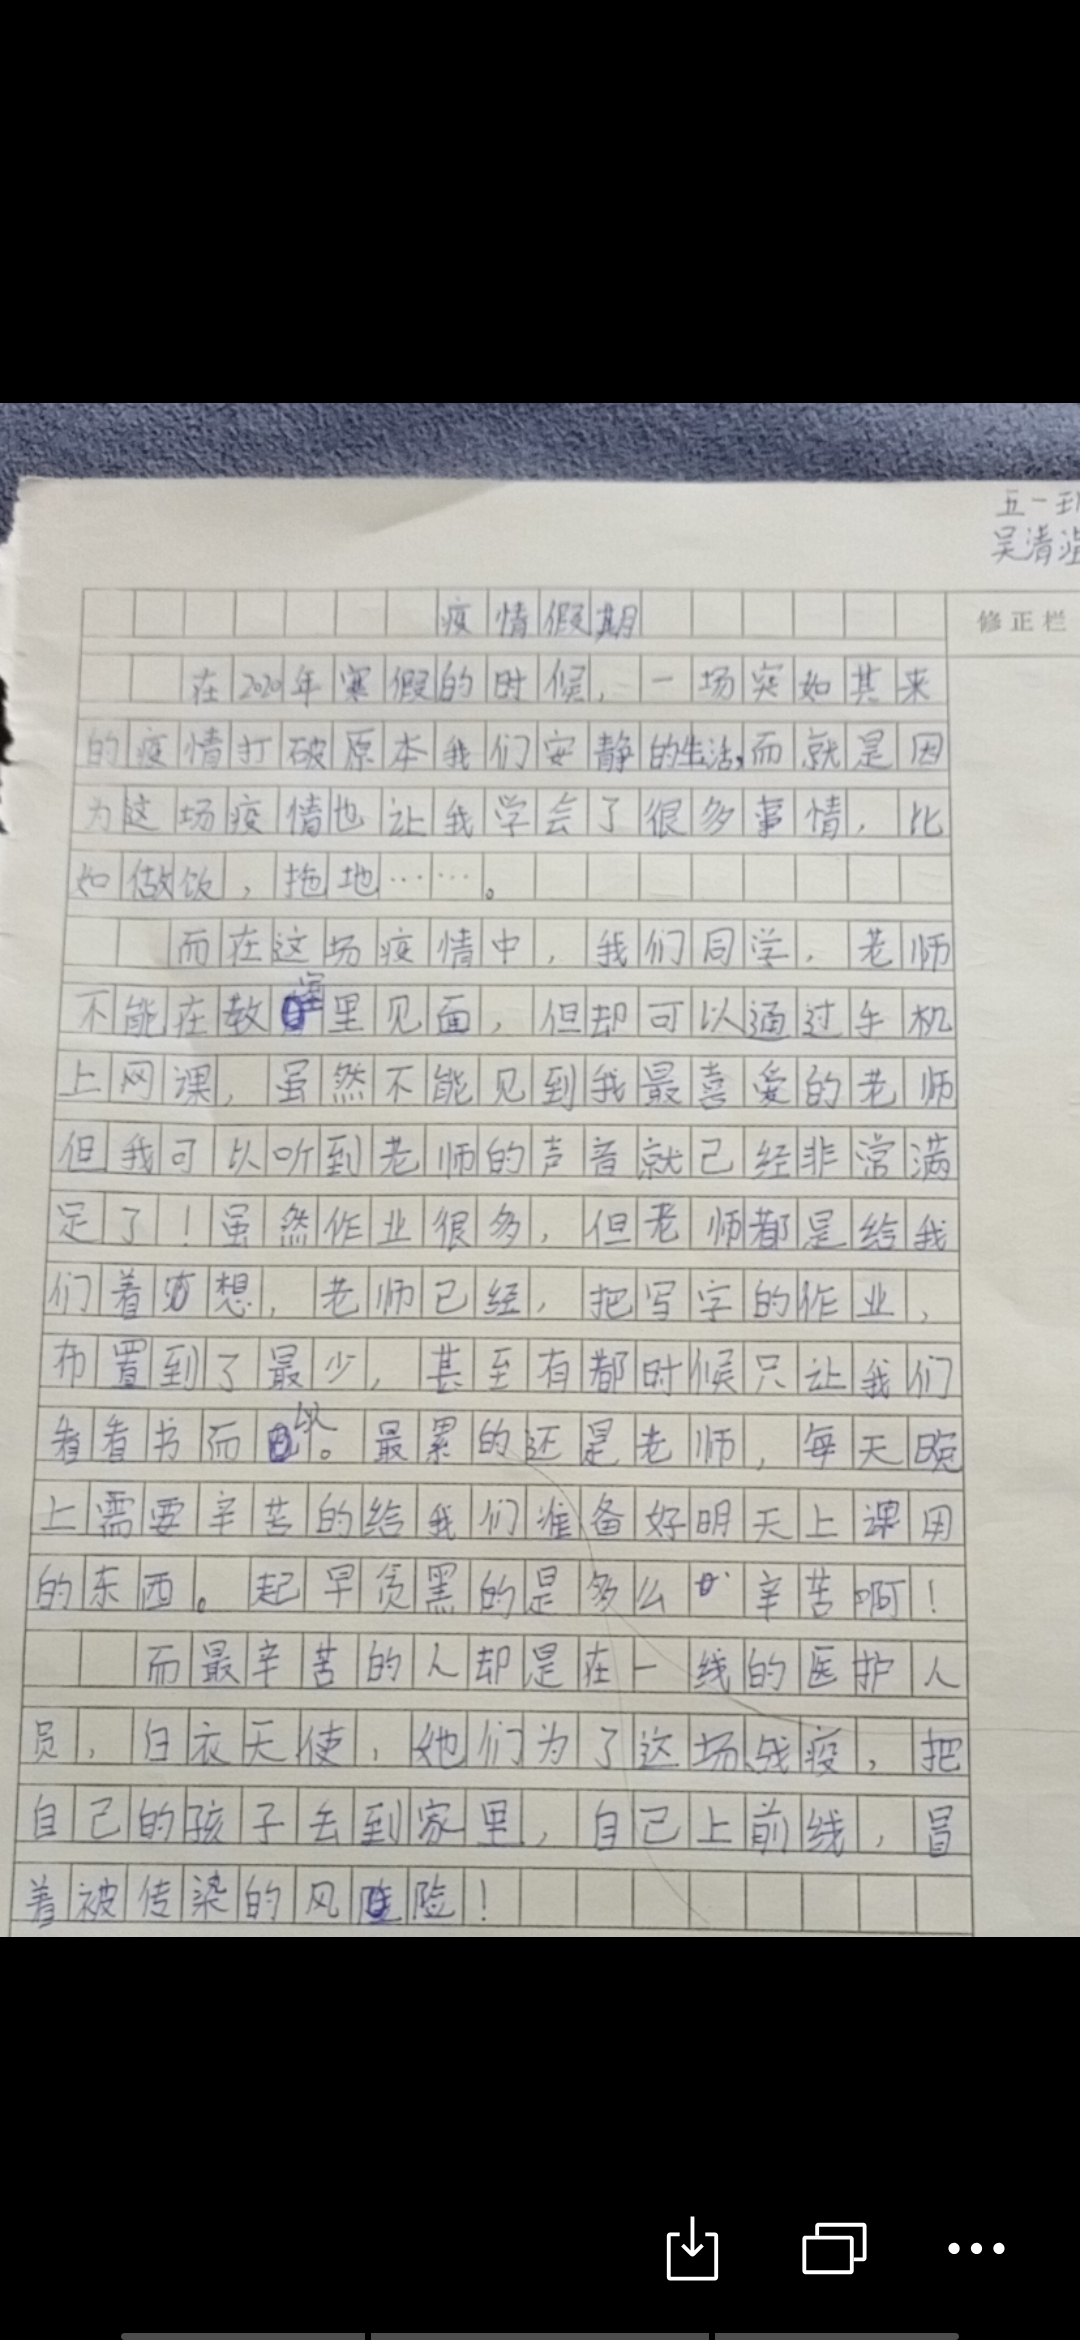 五一班
吴清
疫情假期
修正栏
在2020年寒假的时候，一场突如其来
的疫情打破原本我们安静的生活，而就是因
为这场疫情也让我学会了很多事情，比
如做饭，拖地……。
而在这场疫情中，我们同学，老师
不能在教室里见面，但却可以通过手机
上网课，虽然不能见到我最喜爱的老师
但我可以听到老师的声音就已经非常满
足了！虽然作业很多，但老师都是给我
们着想，老师已经，把写字的作业，
布置到了最少，甚至有都时候只让我们
看看书而以。最累的还是老师，每天晚
上需要辛苦的给我们准备好明天上课用
的东西。起早贪黑的是多么辛苦啊！
而最辛苦的人却是在一线的医护人
员，白衣天使，她们为了这场战疫，把
自己的孩子丢到家里，自己上前线，冒
着被传染的风险！